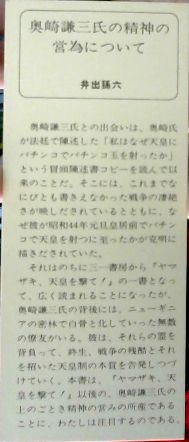 奥崎謙三氏の精神の
営為について
井出孫六
奥崎謙三氏との出会いは、奥崎氏
が法廷で陳述した「私はなぜ天皇に
パチンコでパチンコ玉を射ったか」
という冒頭陳述書コピーを読んで以
来のことだ。そこには、これまでな
にびとも書きえなかった戦争の凄絶
さが映しだされているとともに、な
ぜ彼が昭和44年元旦皇居前でパチン
コで天皇を射つに至ったかが克明に
描きだされていた。
それはのちに三一書房から『ヤマ
ザキ、天皇を撃て！』の一書となっ
て、広く読まれることになったが、
奥崎謙三氏の背後には、ニューギニ
アの密林で白骨と化していった無数
の僚友がいる。彼は、それらの霊を
背負って、終生、戦争の残酷とそれ
を招いた天皇制の本質を告発しつづ
けていく。本書は、『ヤマザキ、天
皇を撃て！』以後の、奥崎謙三氏の
上のごとき精神の営みの所産である
ことに、わたしは注目するのである。